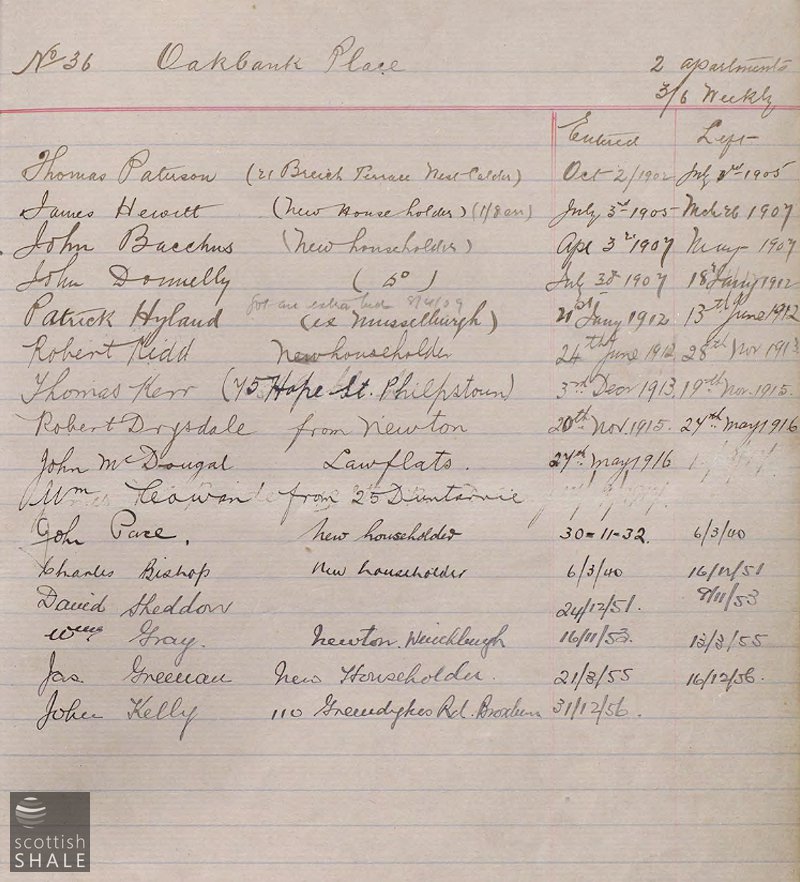 No 36 Oakbank Place 2 apartments
3/6 Weekly
Entered Left
Thomas Paterson (21 Breich Terrace West Calder) Oct 2/1902 July 3rd 1905
James Hewitt (New Householder) (1/8 ) July 3rd 1905 Mch 26 1907
John Bacchus (New householder) Apr 3rd 1907 May 1907
John Donnelly ( Do ) July 30 1907 18 Jany 1912
got an extra bed 8/4/09
Patrick Hyland (ex Musselburgh) 21st Jany 1912 13th June 1912
Robert Kidd New householder 24th June 1912 28th Nov 1913
Thomas Kerr (75 Hope St. Philpstoun) 3rd Decr 1913. 19th Nov. 1915.
Robert Drysdale from Newton 20th Nov 1915. 24th May 1916
John McDougal Lawflats. 27th May 1916
Wm from 25 Duntarvie
John Pace. New householder 30-11-32. 6/3/40
Charles Bishop New householder 6/3/40 16/11/51
David Sheddon 24/12/51. 8/11/53
Wm Gray. Newton. Winchburgh 16/11/53. 12/3/55
Jas. Greenan New Householder. 21/3/55 16/12/56.
John Kelly 110 Greendykes Rd. Broxburn 31/12/56.
scottish
SHALE